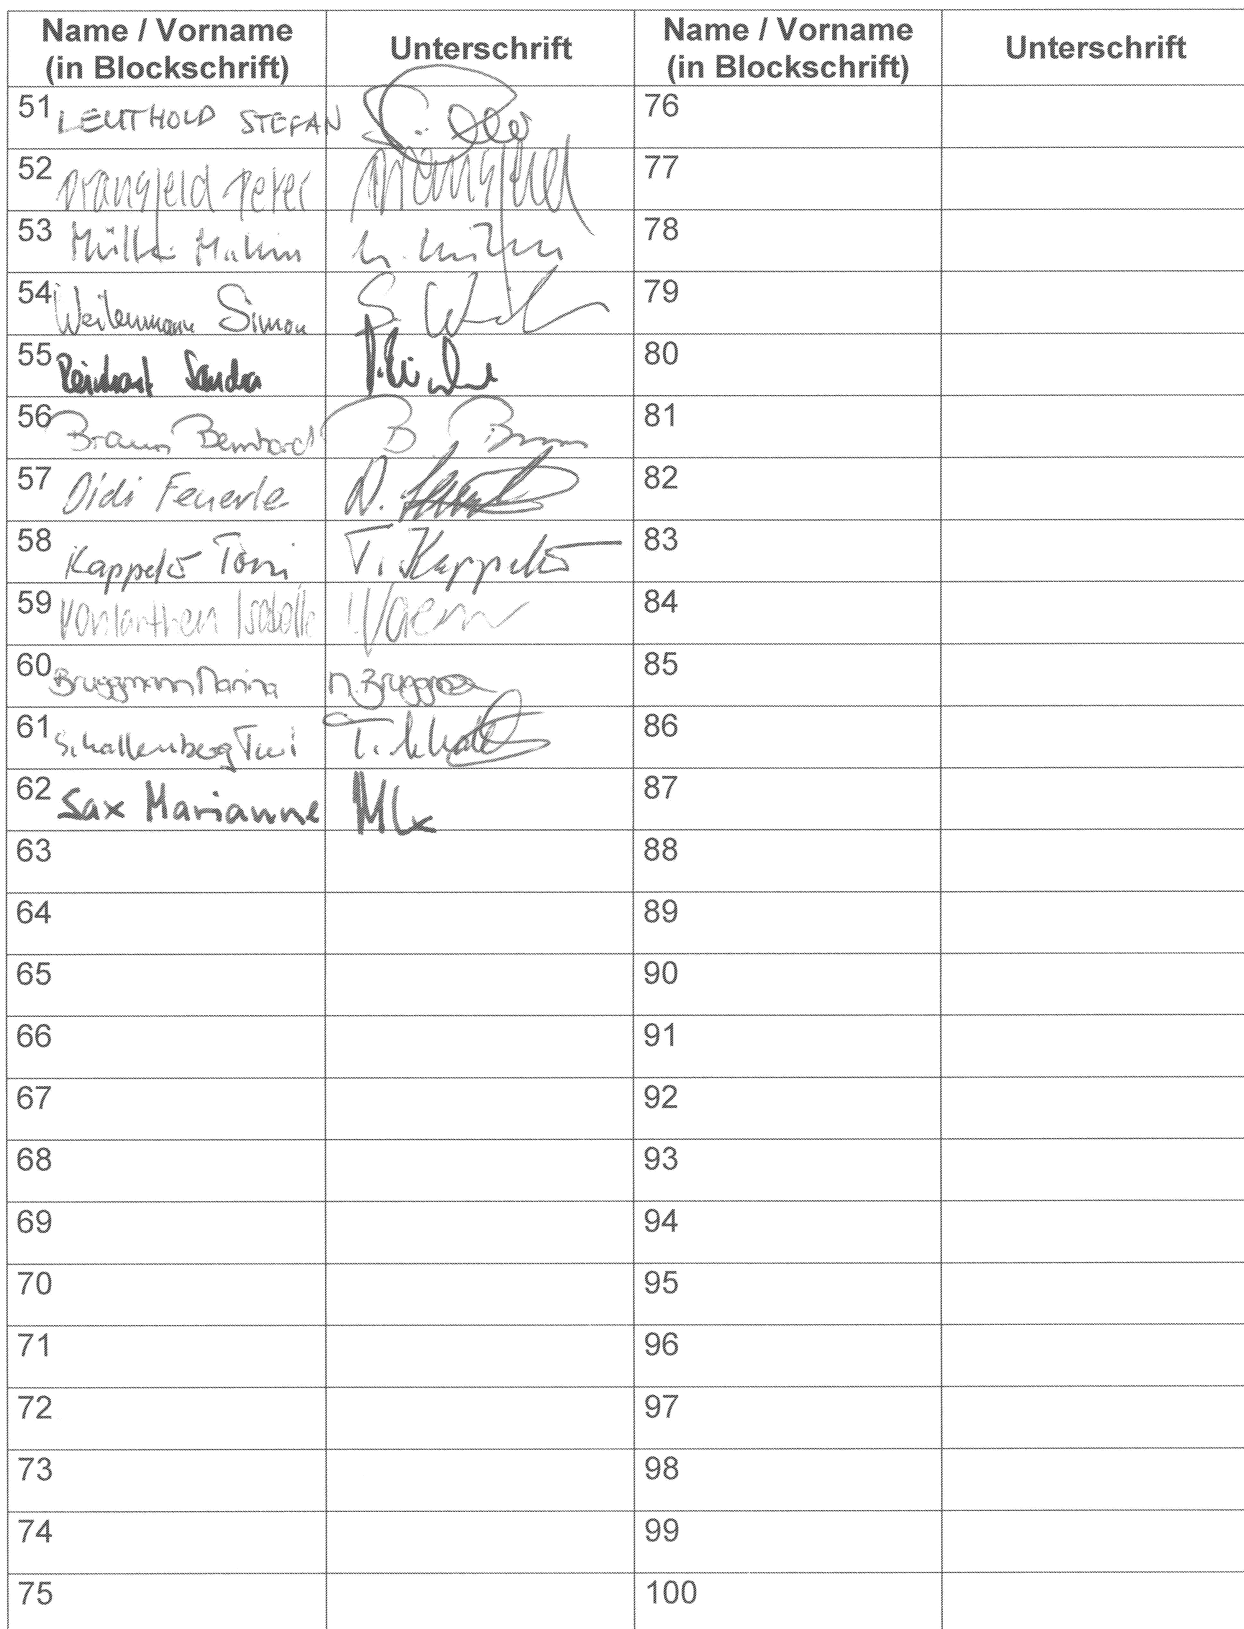 Name / Vorname (in Blockschrift) Unterschrift Name / Vorname (in Blockschrift) Unterschrift
51 LEUTHOLD STEFAN 76
52 Peter 77
53 Müller Martin M. Müller 78
54 Weilenmann Simon S. 79
55 Reinhart Sandra 80
56 Braun Bernhard B. Braun 81
57 Didi Feuerle D. 82
58 Kappeler Toni T. Kappeler 83
59 Vonlanthen Isabelle 84
60 Bruggmann Marina M. Bruggmann 85
61 Schallenberg Turi T. 86
62 Sax Marianne 87
63 88
64 89
65 90
66 91
67 92
68 93
69 94
70 95
71 96
72 97
73 98
74 99
75 100